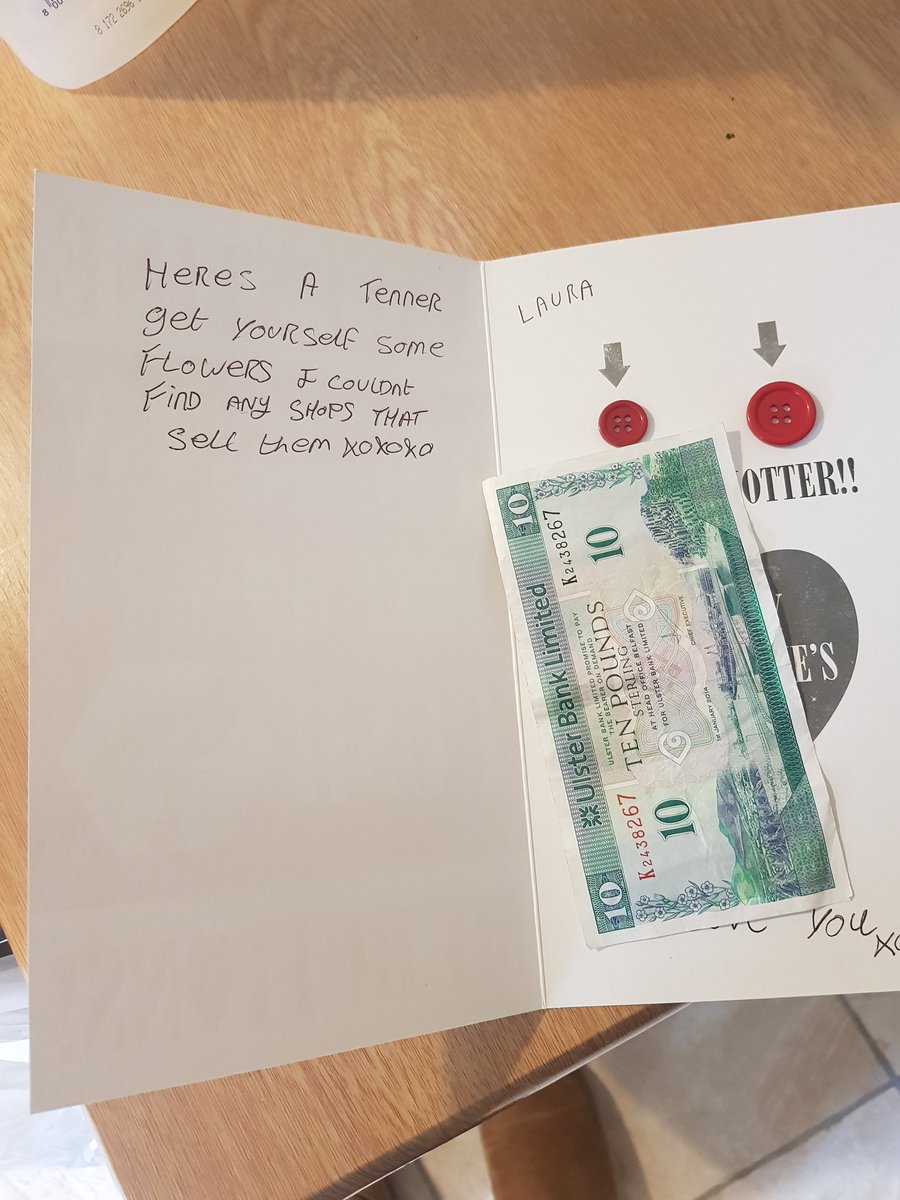 8 172 2696
HERES A TENNER
get YOURSELF SOME
FLOWERS I COULDNT
FIND ANY SHOPS THAT
SELL them XOXOXO
LAURA
OTTER!!
E'S
10
Ulster Bank Limited
10
K2438267
10
ULSTER BANK LIMITED PROMISE TO PAY
THE BEARER ON DEMAND
TEN POUNDS
STERLING
AT HEAD OFFICE BELFAST
FOR ULSTER BANK LIMITED
1st JANUARY 2014
CHIEF EXECUTIVE
K2438267
10
YOU